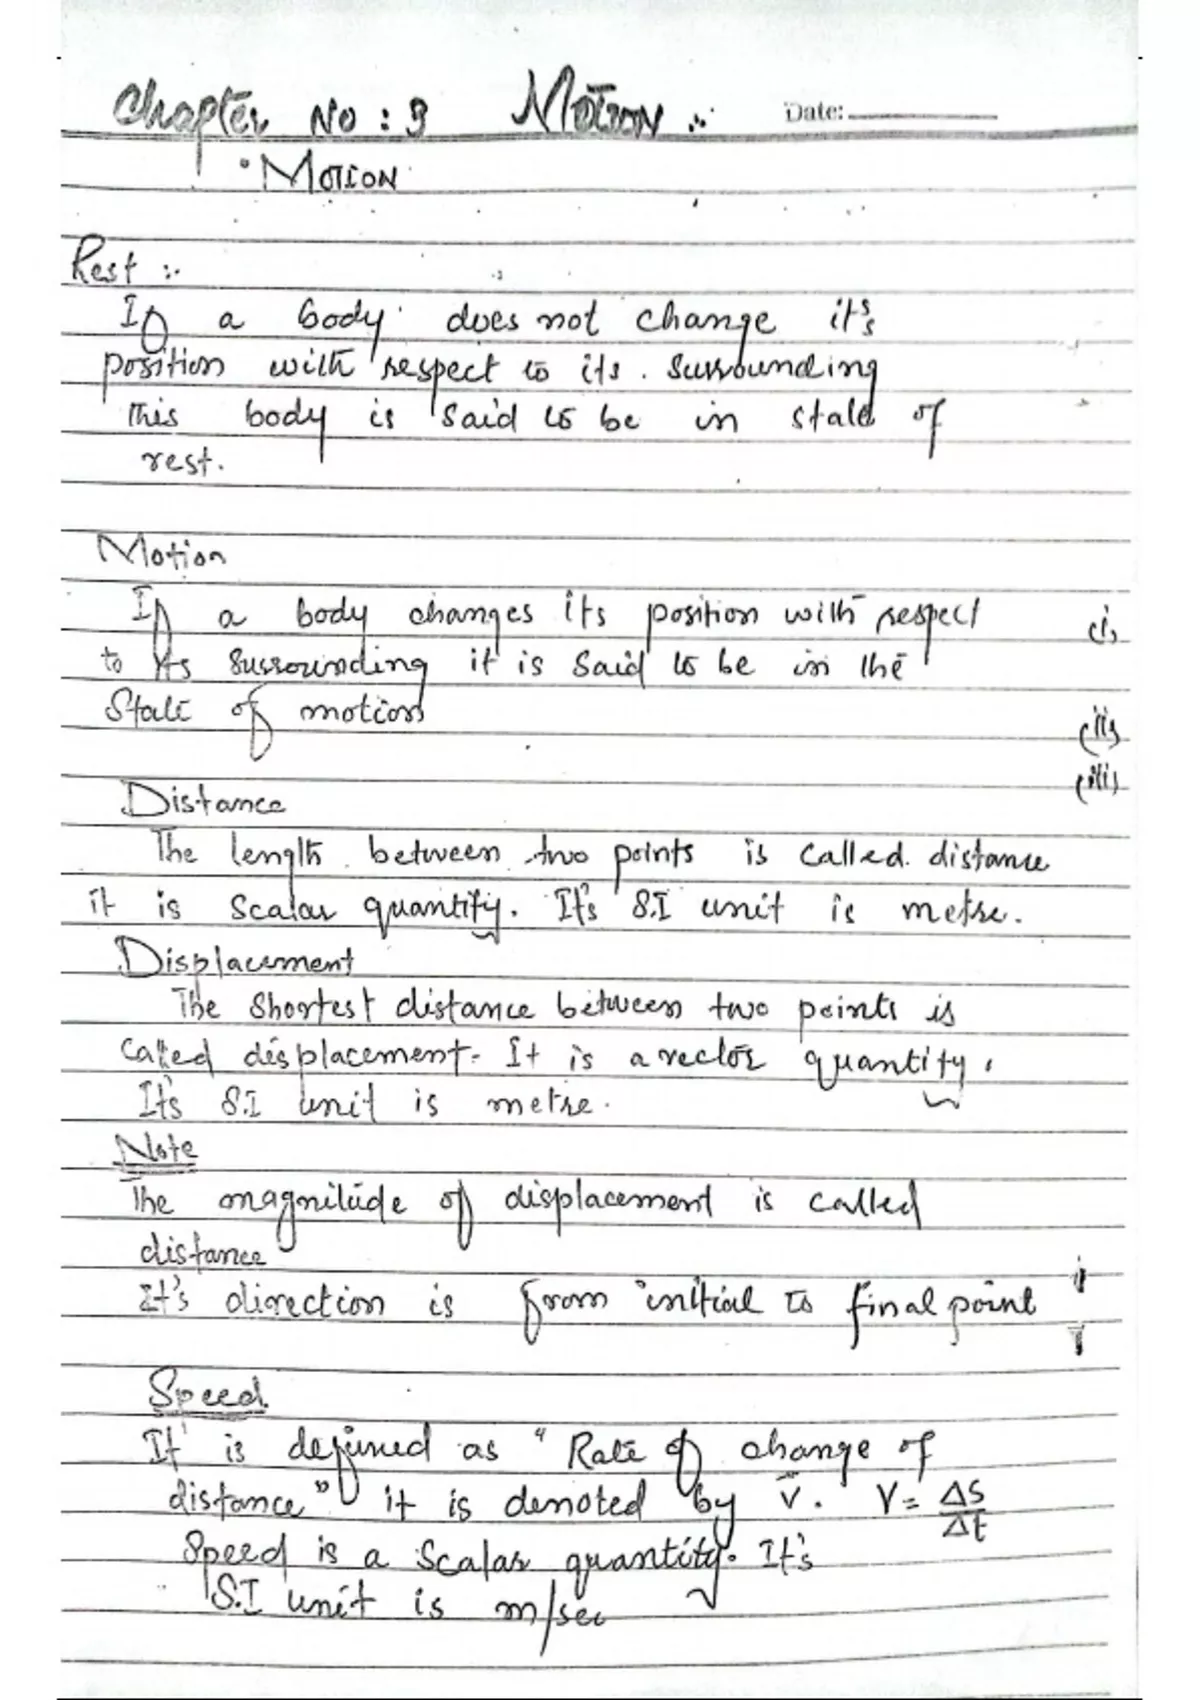 Chapter No : 3 MOTION ∴ Date:
• MOTION
Rest :.
If a body does not change it's
position with respect to its . surrounding
This body is said to be in state of
rest.
Motion
If a body changes its position with respect
(i)
to its surrounding it is said to be in the
State of motion
(ii)
(iii)
Distance
The length between two points is called. distance
it is scalar quantity. It's S.I unit is metre.
Displacement
The shortest distance between two points is
called displacement. It is a vector quantity.
It's S.I unit is metre.
Note
The magnitude of displacement is called
distance
It's direction is from initial to final point
Speed.
It is defined as " Rate of change of
distance" it is denoted by v̄. V = ΔS/Δt
Speed is a scalar quantity. It's
S.I unit is m/sec